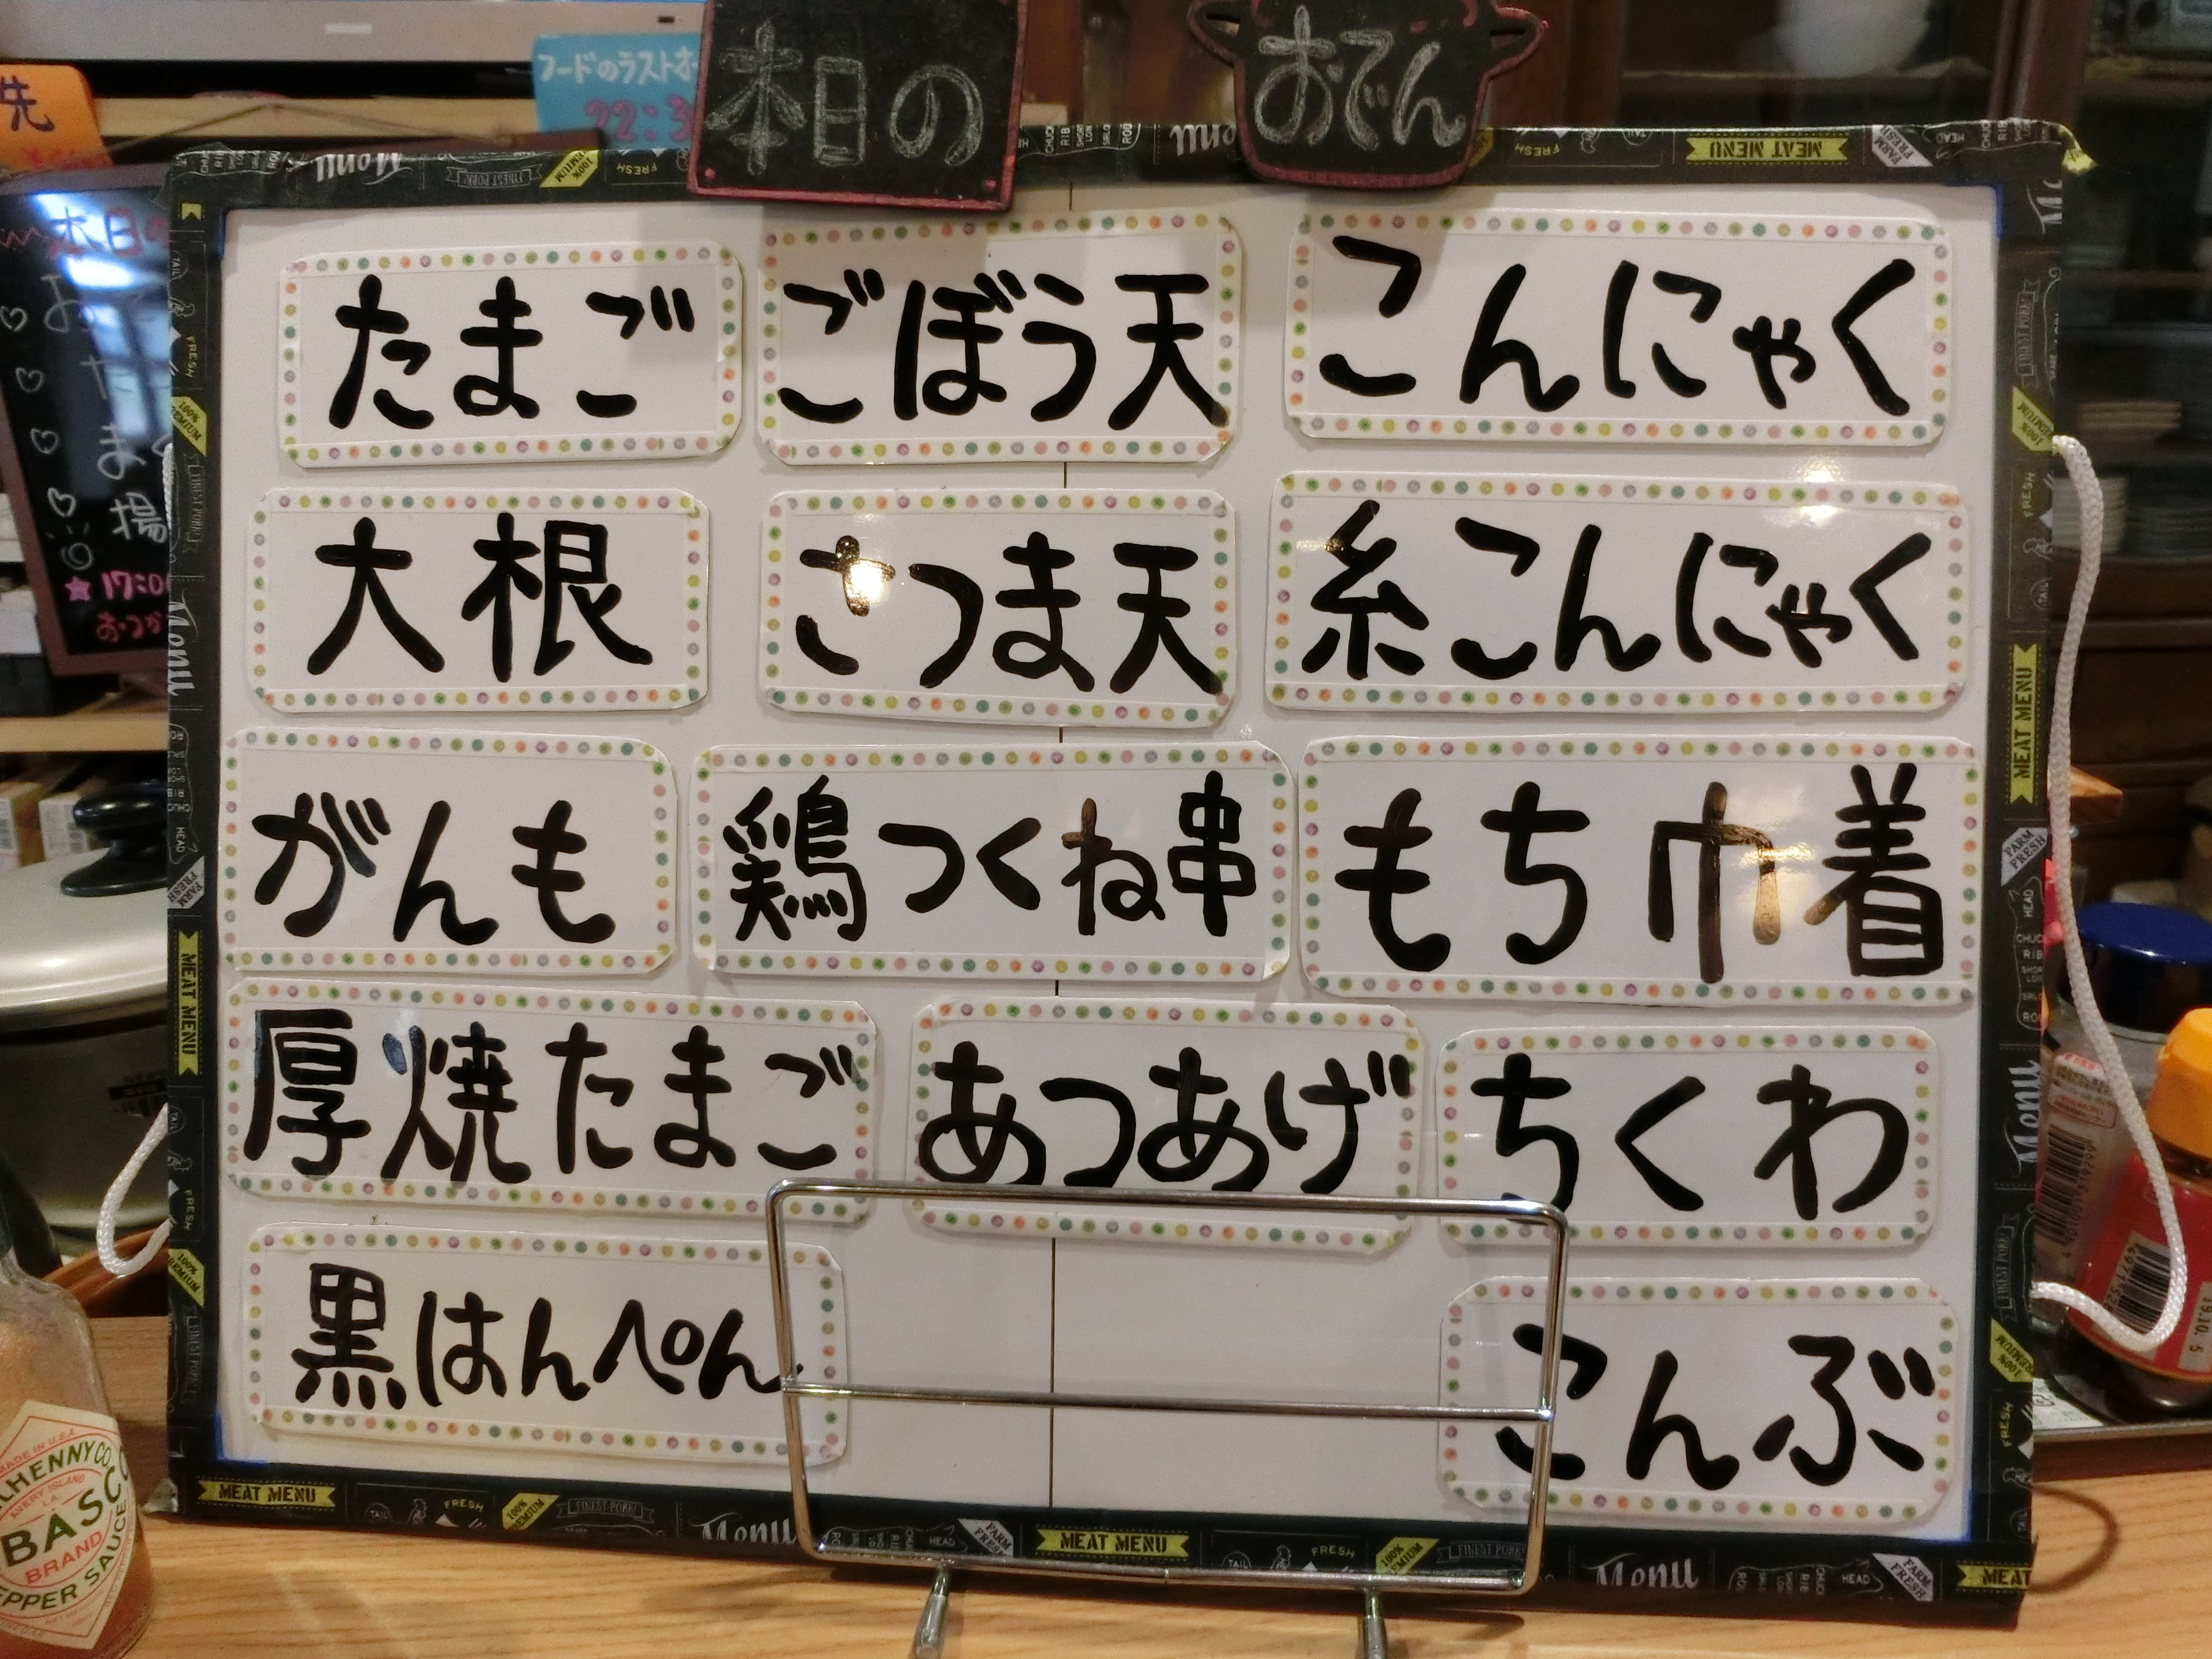 本日の
おでん
フードのラストオ
22:3
先
本日の
17:00
たまご
ごぼう天
こんにゃく
大根
さつま天
糸こんにゃく
がんも
鶏つくね串
もち巾着
厚焼たまご
あつあげ
ちくわ
黒はんぺん
こんぶ
MEAT MENU
Menu
FARM FRESH
100% PREMIUM
FINEST PORK
FRESH
TAIL
HEAD
MADE IN U.S.A.
BASCO
BRAND
PEPPER SAUCE